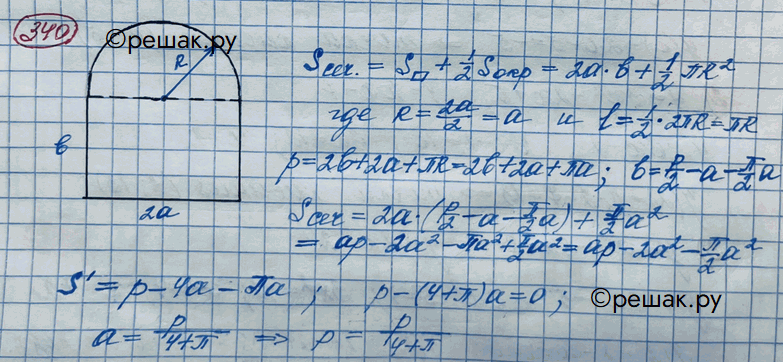 340
©решак.ру
R
в
2a
Sсеч. = S▭ + 1/2 Sокр = 2a·в + 1/2 πR²
где R = 2a/2 = a и l = 1/2·2πR = πR
p = 2в + 2a + πR = 2в + 2a + πa; в = p/2 - a - π/2 a
Sсеч = 2a·(p/2 - a - π/2 a) + π/2 a²
= ap - 2a² - πa² + π/2 a² = ap - 2a² - π/2 a²
S' = p - 4a - πa; p - (4+π)a = 0;
©решак.ру
a = p/4+π ⇒ p = p/4+π